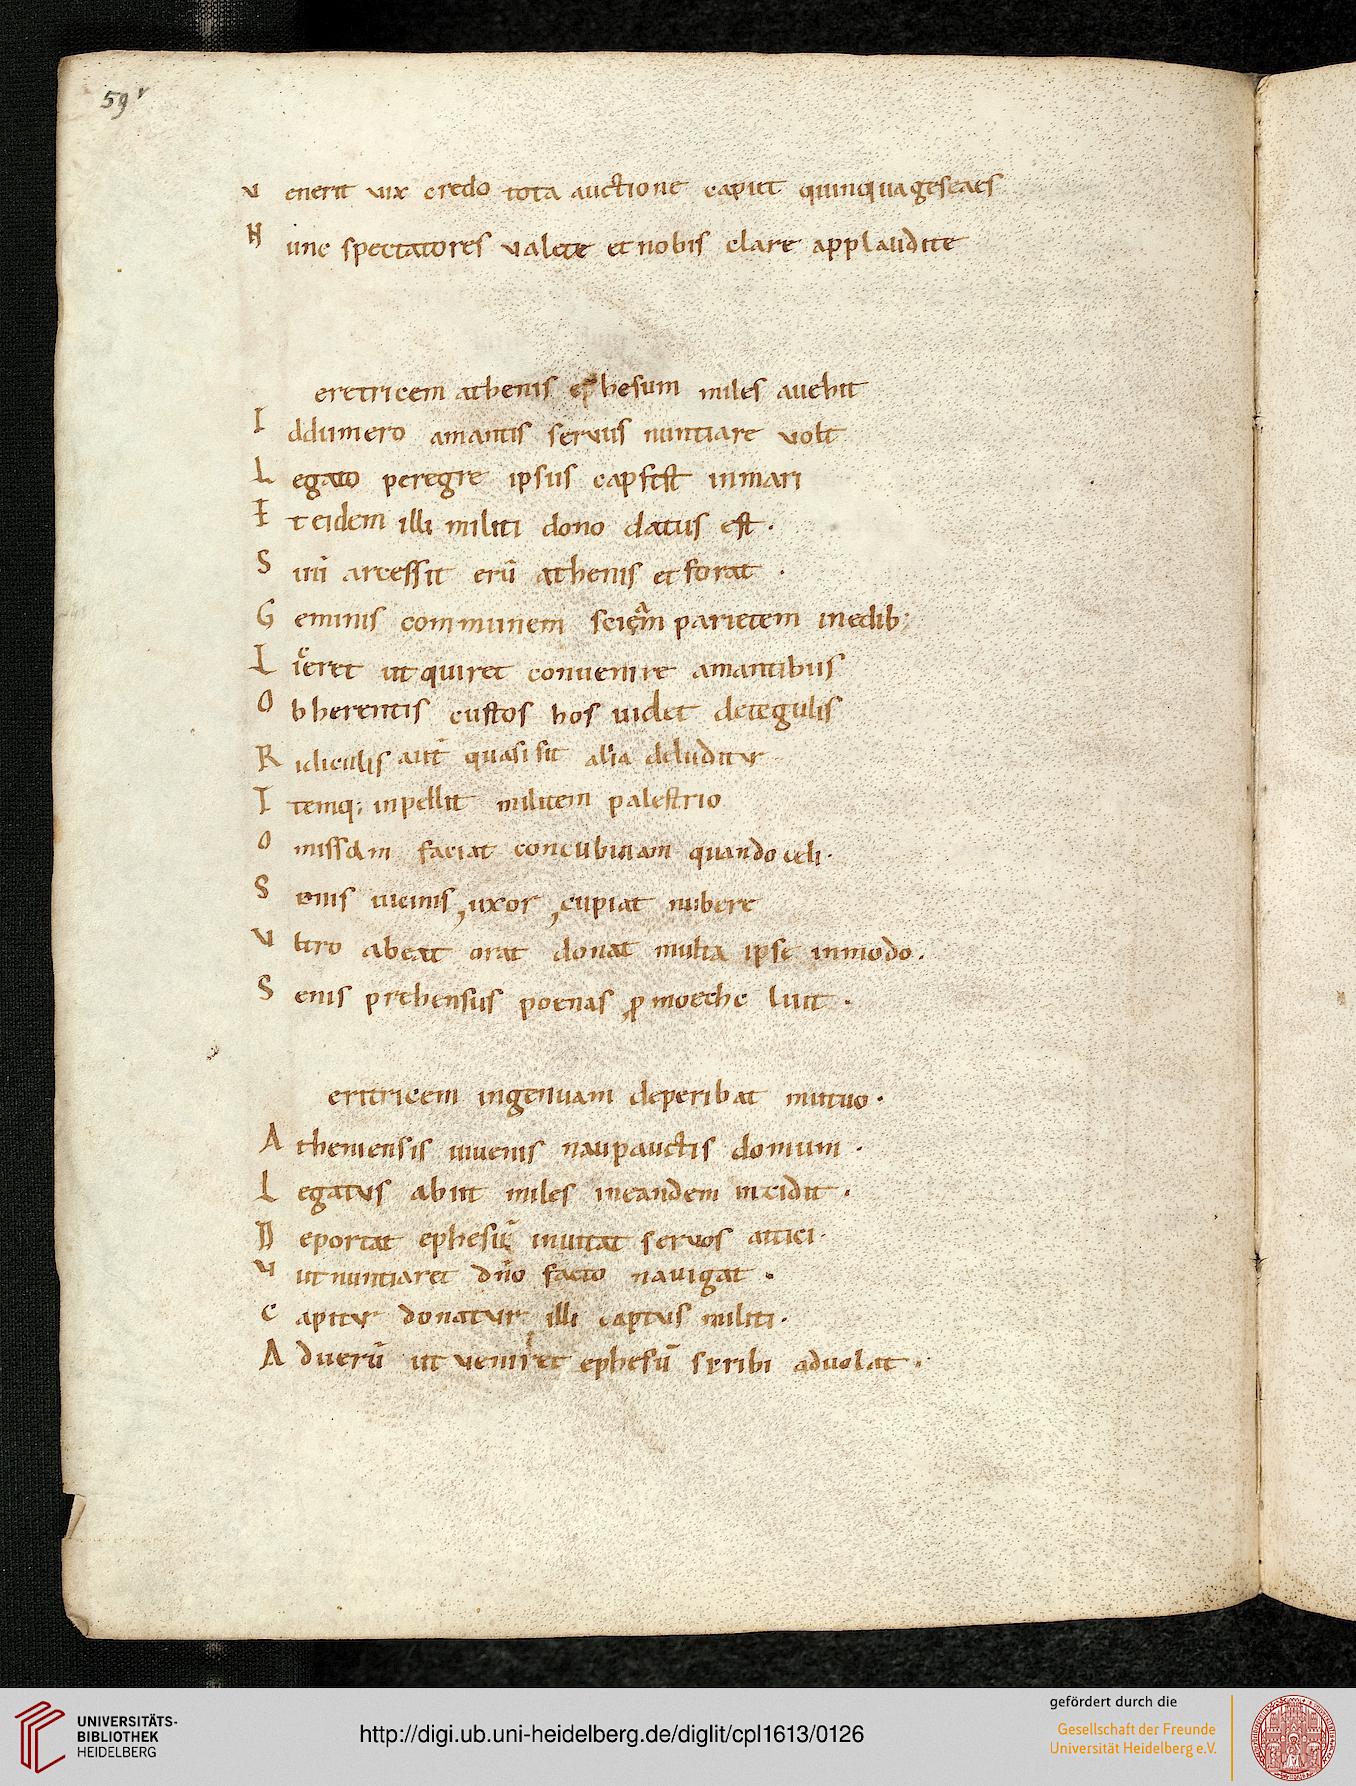 59v
V enerit uix credo tota auctione capiet quinquagesеaes
N unc spectatores valete et nobis clare applaudite
eretricem athenis ephesum miles auehit
I ddumero amantis servus nuntiare volt
L egato peregre ipsus capsest inmari
E t eidem illi militi dono datus est ·
S uū arcessit erū athenis et forat ·
G eminis communem sciem parietem inedib;
L iceret ut quiret conuenire amantibus
O bherentis custos hos uidet detegulis
R idiculis aut quasi sit alia deluditur
I temq; inpellit militem palestrio
O missam faciat concubinam quando celi ·
S enis uicinis, uxor, cupiat nubere
V ltro abeat orat donat multa ipse inmodo ·
S enis prehensus poenas p moeche luit ·
eritricem ingenuam deperibat mutuo ·
A theniensis iuuenis naupauctis domum ·
L egatus abiit miles ineandem incidit ·
D eportat ephesū inuitat servos attici ·
V ut nuntiaret dño facto nauigat ·
C apitur donatur illi captus militi ·
A d uerū ut veniret ephesū scribi aduolat ·
UNIVERSITÄTS-
BIBLIOTHEK
HEIDELBERG
http://digi.ub.uni-heidelberg.de/diglit/cpl1613/0126
gefördert durch die
Gesellschaft der Freunde
Universität Heidelberg e.V.